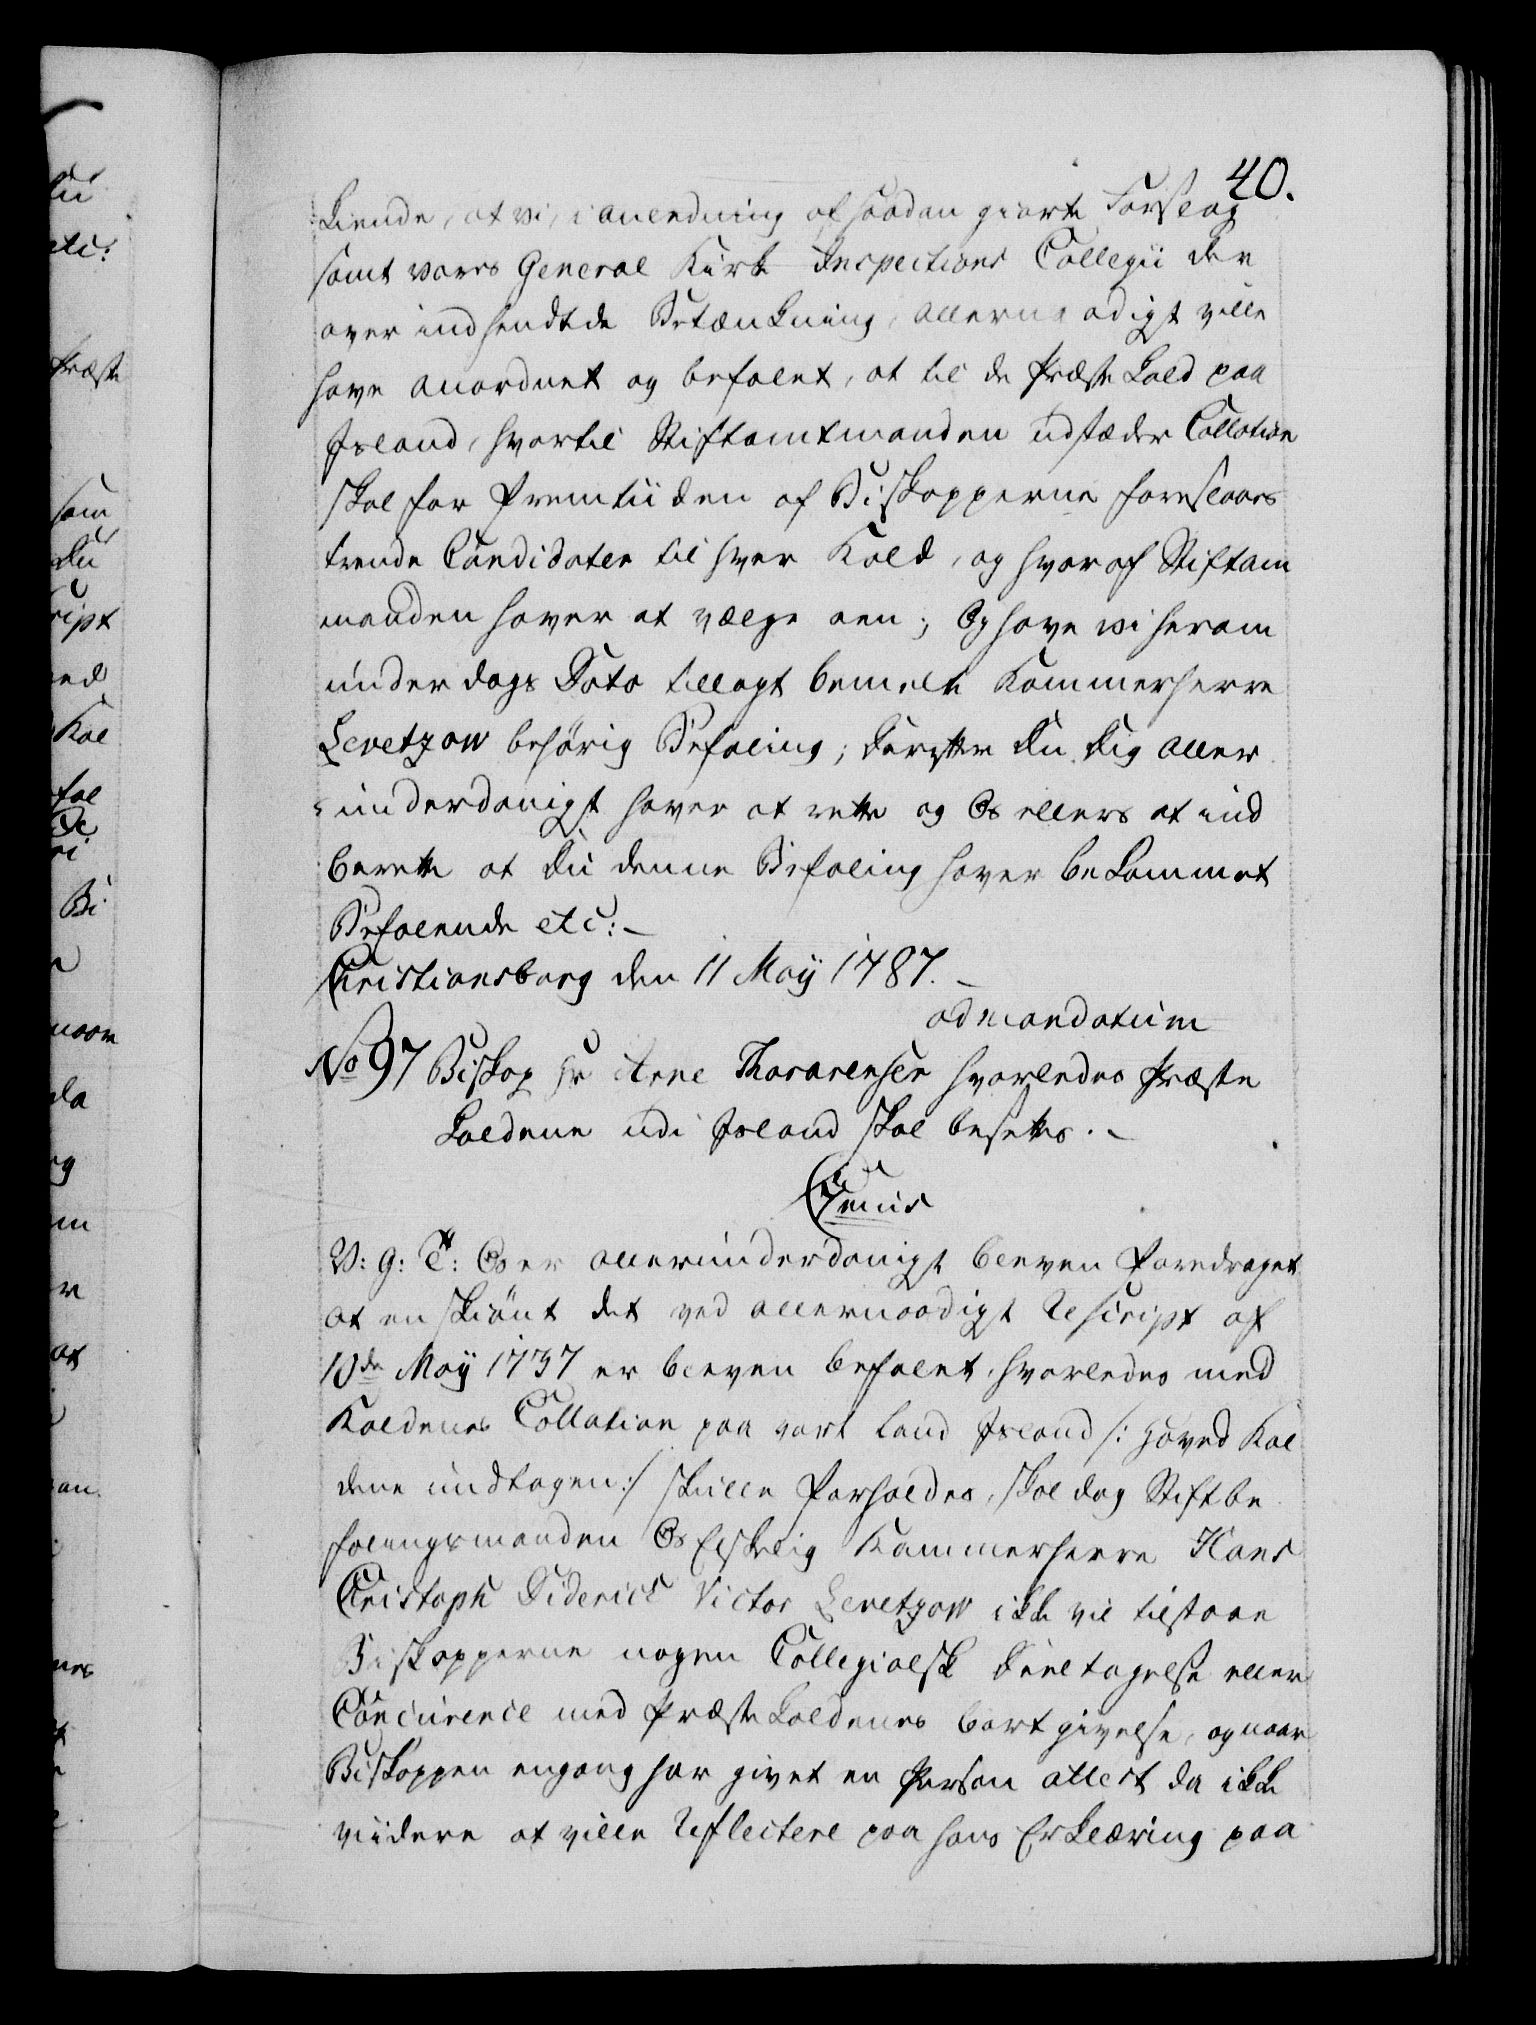 40.
kiende, at vi, i anledning af saadan giorte Forslag
samt vores General Kirke Inspections Collegii der
over indsendtde Betænkning, allernaadigst ville
have anordnet og befalet, at til de Præste Kald paa
Island, hvortil Stiftamtmanden udstæder Collation
skal for Fremtiiden af Biskopperne foreslaaes
trende Candidater til hver Kald, og hvoraf Stiftam
manden haver at vælge een; Og have vi herom
under dags Dato tillagt bemelte Kammerherre
Levetzow behörig Befaling; Derefter Du Dig aller
underdanigst haver at rette og Os ellers at ind
berette at Du denne Befaling haver bekommet
Befalende etc:
Christiansborg den 11 Maÿ 1787.
ad mandatum
No 97 Biskop Hr Arne Thorarensen hvorledes Præste
Kaldene udi Island skal besettes.
Genus
V: G: T: Os er allerunderdanigst bleven Foredraget
at en skiönt det ved allernaadigst Rescript af
10de Maÿ 1737 er bleven befalet, hvorledes med
Kaldenes Collation paa vort Land Island /: Hoved Kal
dene undtagen :/ skulle Forholdes, skal dog Stiftbe
falingsmanden Os Elskelig Kammerherre Hans
Christoph Diderich Victor Levetzow ikke vil tilstaae
Biskopperne nogen Collegialsk Deeltagelse eller
Concurence med Præste Kaldenes bortgivelse, og naar
Biskoppen engang har givet en Person attest da ikke
viidere at ville Reflectere paa hans Erklæring paa